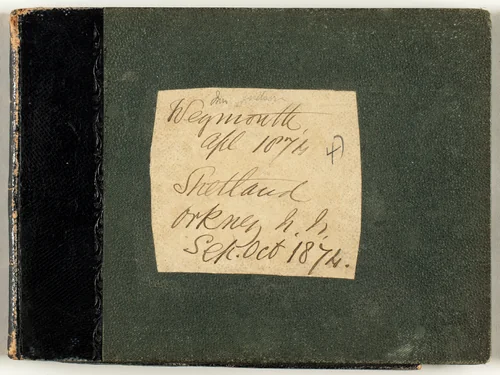 Weymouth,
Apl 1874
4)
Shetland
Orkney h. h.
Sep. Oct 1874.